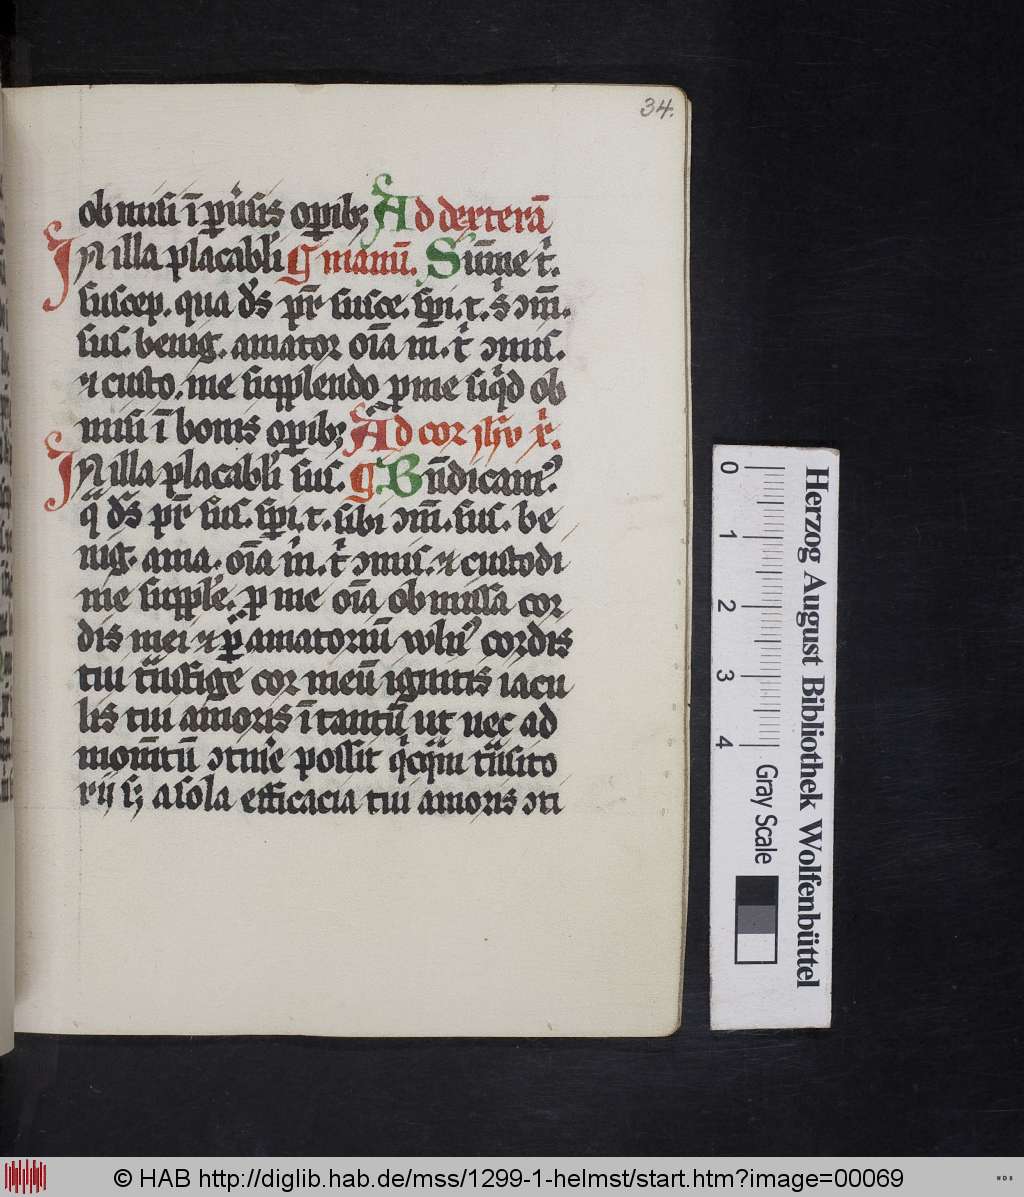 34.
ob misi ī ꝑũsis oꝑib; Ad dexterā
In illa placabli g manū. Sūme t̛.
suscep. qua d̄s pr̄ susce. sp̄i. t. s̛ ↄm̄.
sus. benig. amator oīa m̛. t̛ ↄmis.
⁊ custo. me supplendo ꝑ me siq̛d ob
misi ī bonis oꝑib; Ad cor jhũ x̛.
In illa placabli sus. g Bn̄dicam⁹.
q̄ d̄s pr̄ sus. sp̄i. t. sibi ↄm̄. sus. be
nig. ama. oīa m̛. t̛ ↄmis. ⁊ custodi
me supple. ꝑ me oīa ob missa cor
dis mei ⁊ ꝑ amatoriū wln⁹ cordis
tui tͣnsfige cor meū ignitis iacu
lis tui amoris ī tantū ut nec ad
mom̄tū ↄtn̄e possit q̛cq̄m tͣnsito
rij s; a sola efficacia tui amoris ↄti
0 1 2 3 4
Gray Scale
Herzog August Bibliothek Wolfenbüttel
© HAB http://diglib.hab.de/mss/1299-1-helmst/start.htm?image=00069